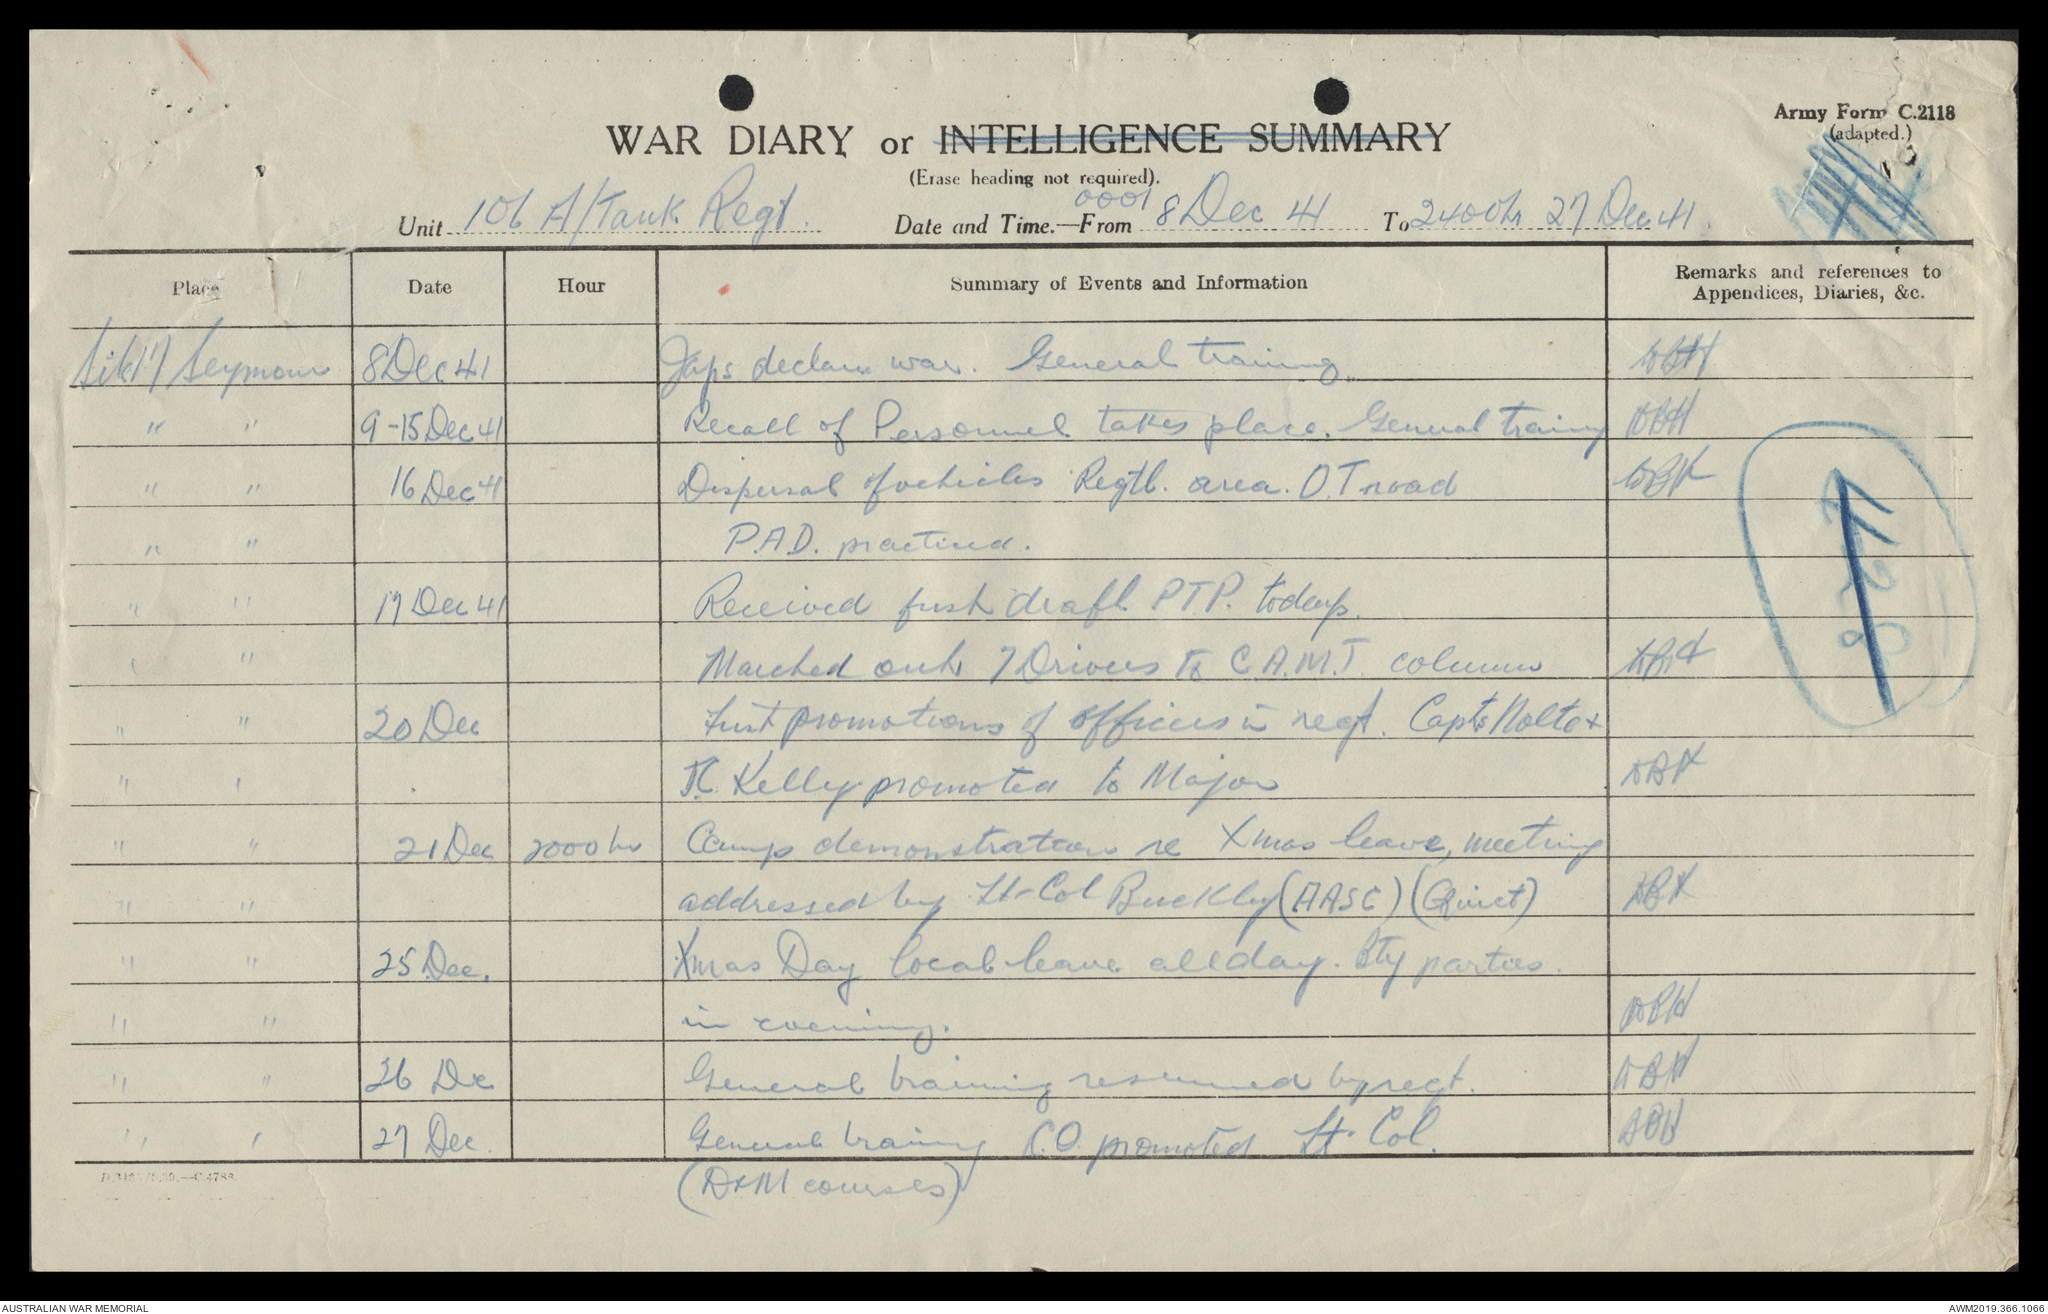 Army Form C.2118
(adapted.)
WAR DIARY or INTELLIGENCE SUMMARY
(Erase heading not required).
Unit 106 A/Tank Regt. Date and Time.—From 0001 8 Dec 41 To 2400hr 27 Dec 41.
Place Date Hour Summary of Events and Information Remarks and references to Appendices, Diaries, &c.
Site 17 Seymour 8 Dec 41 Japs declare war. General training. DBH
" " 9-15 Dec 41 Recall of Personnel takes place. General training DBH
" " 16 Dec 41 Dispersal of vehicles Regtl. area. O.T. road DBH
" " P.A.D. practised.
" " 17 Dec 41 Received first draft PTP. today.
" " Marched out 7 Drivers to C.A.M.T. column DBH
" " 20 Dec First promotions of officers in regt. Capts Nolte &
" " Kelly promoted to Major DBH
" " 21 Dec 2000 hr Camp demonstration re Xmas leave, meeting
" " addressed by Lt-Col Buckley (AASC) (Quiet) DBH
" " 25 Dec. Xmas Day local leave all day. Bty parties.
" " in evening. DBH
" " 26 Dec General training resumed by regt. DBH
" " 27 Dec. General training C.O. promoted Lt-Col. DBH
(D & M courses)
428
AUSTRALIAN WAR MEMORIAL
AWM2019.366.1066